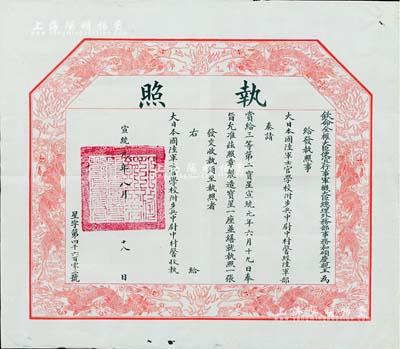 執照
欽命全權大臣便宜行事軍機大臣總理外務部事務和碩慶親王為
給發執照事
大日本國陸軍士官學校附步兵中尉中村督經陸軍部
奏請
賞給三等第二寶星宣統元年六月十九日奉
旨允准茲照章製造寶星一座並繕就執照一張
發交收執須至執照者
右 給
大日本國陸軍士官學校附步兵中尉中村督收執
宣統元年八月 十八 日
星字第四千六百零三號